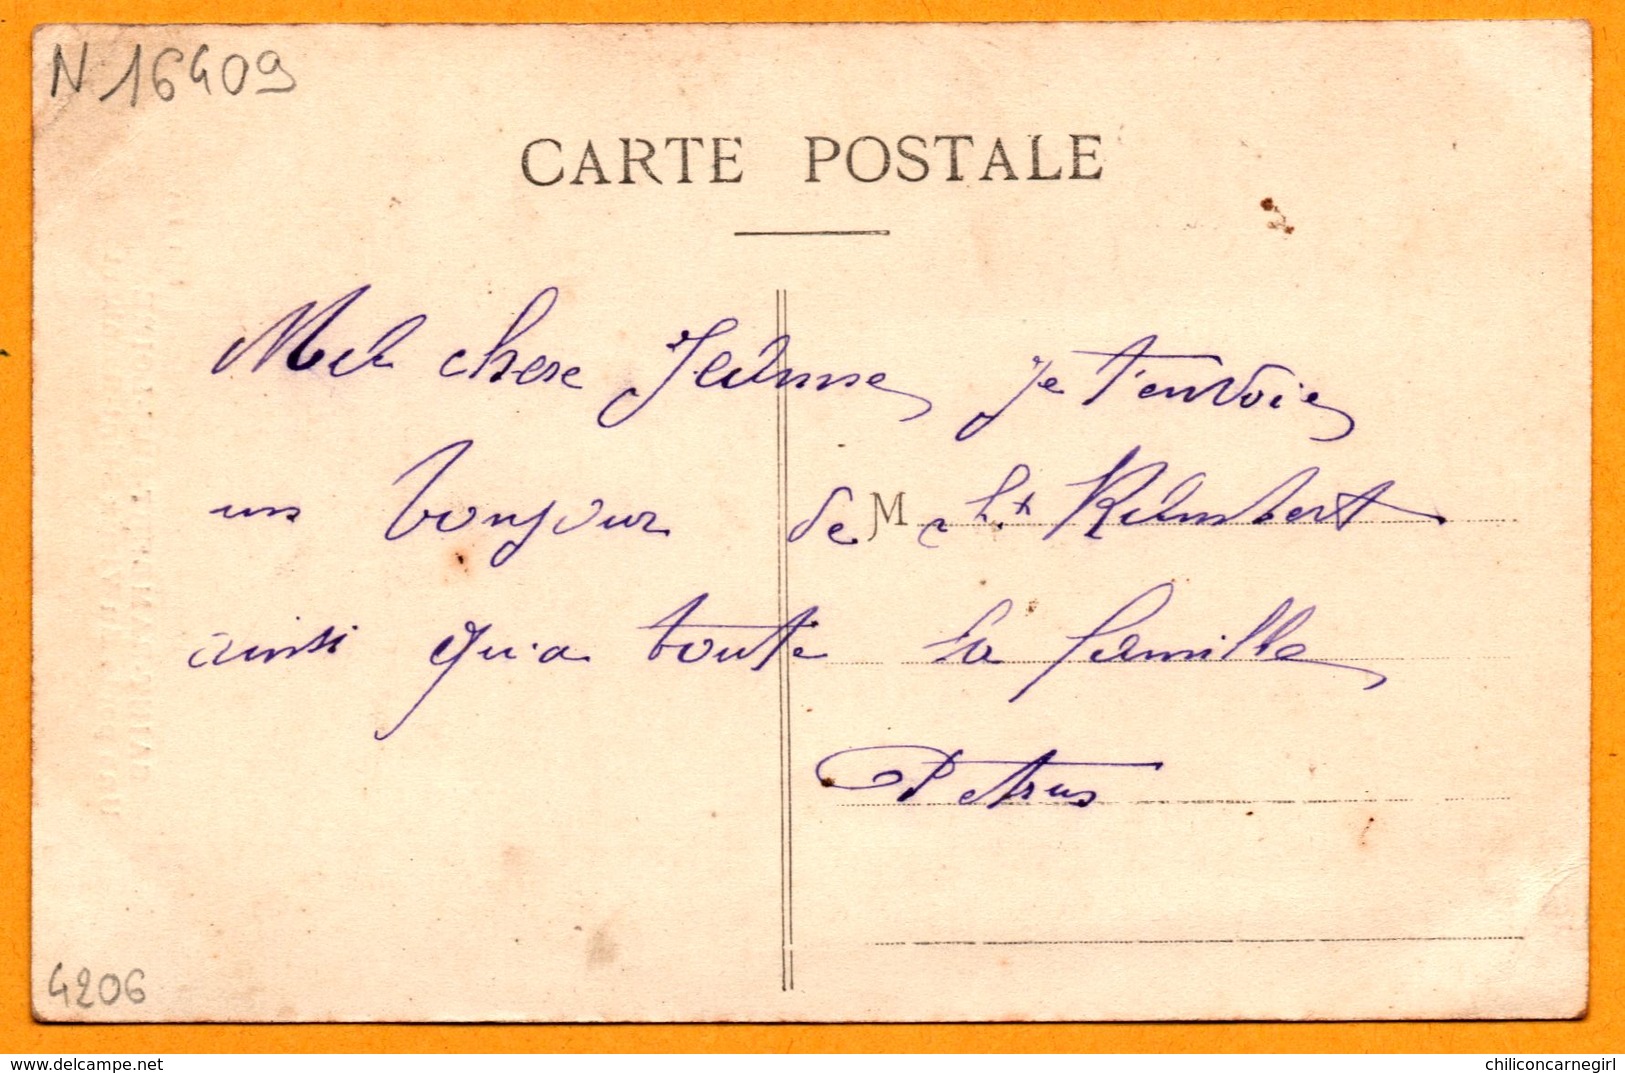 N 16409
CARTE POSTALE
Ma chere Jeanne je t'envoie
un bonjour de M St Rambert
ainsi qu'a toute la famille
Petrus
4206
chiliconcarnegirl